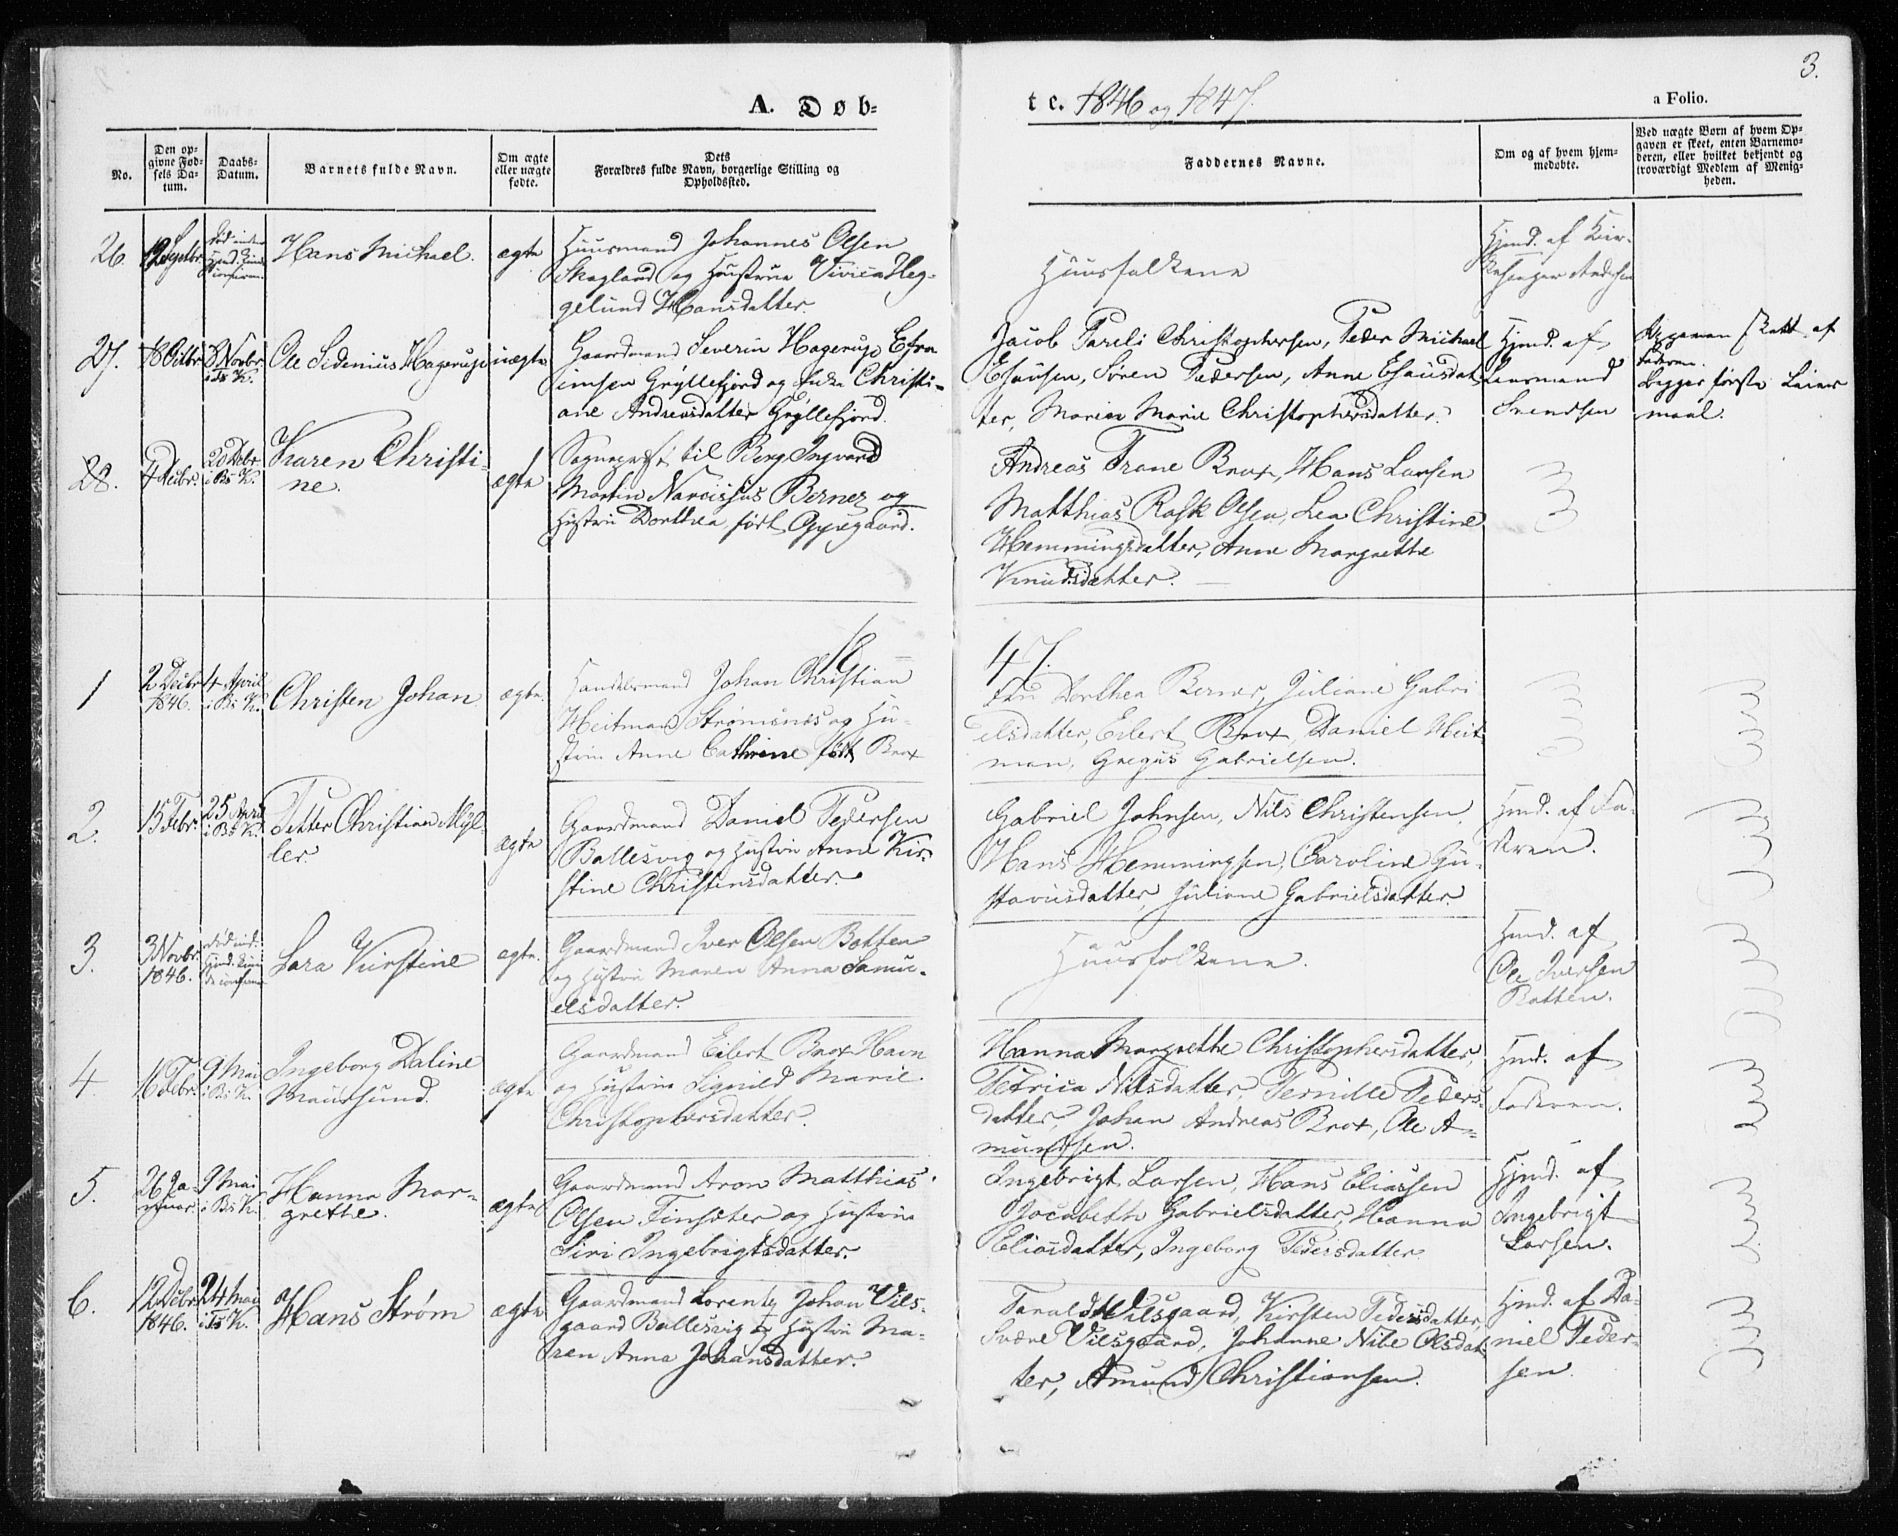 3.
A. Døb-
te. 1846 og 1847.
a Folio.
No.
Den op-
givne Fød-
sels Da-
tum.
Daabs-
Datum.
Barnets fulde Navn.
Om ægte
eller uægte
fødte.
Dets
Forældres fulde Navn, borgerlige Stilling og
Opholdssted.
Faddernes Navne.
Om og af hvem hjem-
medøbte.
Ved uægte Børn af hvem Op-
gaven er skeet, enten Barnemo-
deren, eller hvilket bekjendt og
troværdigt Medlem af Menig-
heden.
26.
12 Septbr.
Hans Michael.
ægte
Huusmand Johannes Olsen
Skagland og Hustrue Vivica Heg-
gelund Hansdatter.
Huusfolkene
Hjemd. af Kir-
kesanger Andersen
27.
18 Octbr.
8 Novbr.
i Ts K.
Ole Sidenius Hagerup
uægte
Gaardmand Severin Hagerup Efra
imsen Gryllefjord og Enke Christi-
ane Andreasdatter Gryllefjord.
Jacob Pareli Christophersen, Peder Michael
Esausen, Søren Pedersen, Anne Esausdat
ter, Maria Marie Christophersdatter.
Hjemd. af
Lensmand
Svendsen
Opgaven skett af
Faderen.
Begges første Leier
maal.
28.
4 Decbr.
20 Decbr
i Bs K.
Karen Christi-
ne.
ægte
Sognepræst til Berg Ingvard
Martin Narcissus Berner og
Hustru Dorthea født Oppegaard.
Andreas Trane Brox, Hans Larsen
Matthias Rask Olsen, Lea Christine
Hemmingsdatter, Anne Margrethe
Knudsdatter.
18
47.
1
2 Decbr
1846.
4 April
i Bs K.
Christen Johan
ægte.
Handelsmand Johan Christian
Heitman Strømsnes og Hu-
strue Anne Cathrine født Brox
Fru Dorthea Berner, Juliane Gabri
elsdatter, Eilert Brox, Daniel Heit-
man, Gregus Gabrielsen.
2.
15 Febr.
25 April
i Bs K.
Petter Christian Myl
ler.
ægte
Gaardmand Daniel Pedersen
Ballesvig og Hustru Anne Kir-
stine Christensdatter.
Gabriel Johnsen, Nils Christensen,
Hans Hemmingsen, Caroline Gu-
stavusdatter, Juliane Gabrielsdatter.
Hjmd. af Fa-
deren.
3.
3 Novbr
1846.
Lara Kirstine
ægte.
Gaardmand Iver Olsen Botten
og Hustru Maren Anna Samu-
elsdatter.
Huusfolkene.
Hjmd. af
Ole Iversen
Botten.
4.
16 Febr.
9 Mai
i Bs K.
Ingeborg Daline
Maursund.
ægte
Gaardmand Eilert Brox Havn
og Hustrue Signild Marie
Christophersdatter.
Hanna Margrethe Christophersdatter,
Petrica Nilsdatter, Pernille Peders-
datter, Johan Andreas Brox, Ole A-
mundsen.
Hjmd. af
Faderen.
5.
26 Ja-
nuar.
9 Mai
i Bs K.
Hanna Mar-
grethe.
ægte
Gaardmand Aron Matthias
Olsen Finsæter og Hustrue
Siri Ingebrigtsdatter.
Ingebrigt Larsen, Hans Eliassen
Jocabeth Gabrielsdatter, Hanna
Eliasdatter, Ingeborg Pedersdatter
Hjemd. af
Ingebrigt
Larsen.
6.
12 Decbr
1846.
24 Mai
i Ts K.
Hans Strøm
ægte
Gaardmand Lorentz Johan Vils-
gaard Ballesvig og Hustru Ma-
ren Anna Johansdatter.
Tarald Vilsgaard, Kirsten Pedersdatter,
Vilsgaard, Johanne Nibe Olsdat-
ter, Amund Christiansen.
Hjmd. af Da-
niel Peder-
sen.